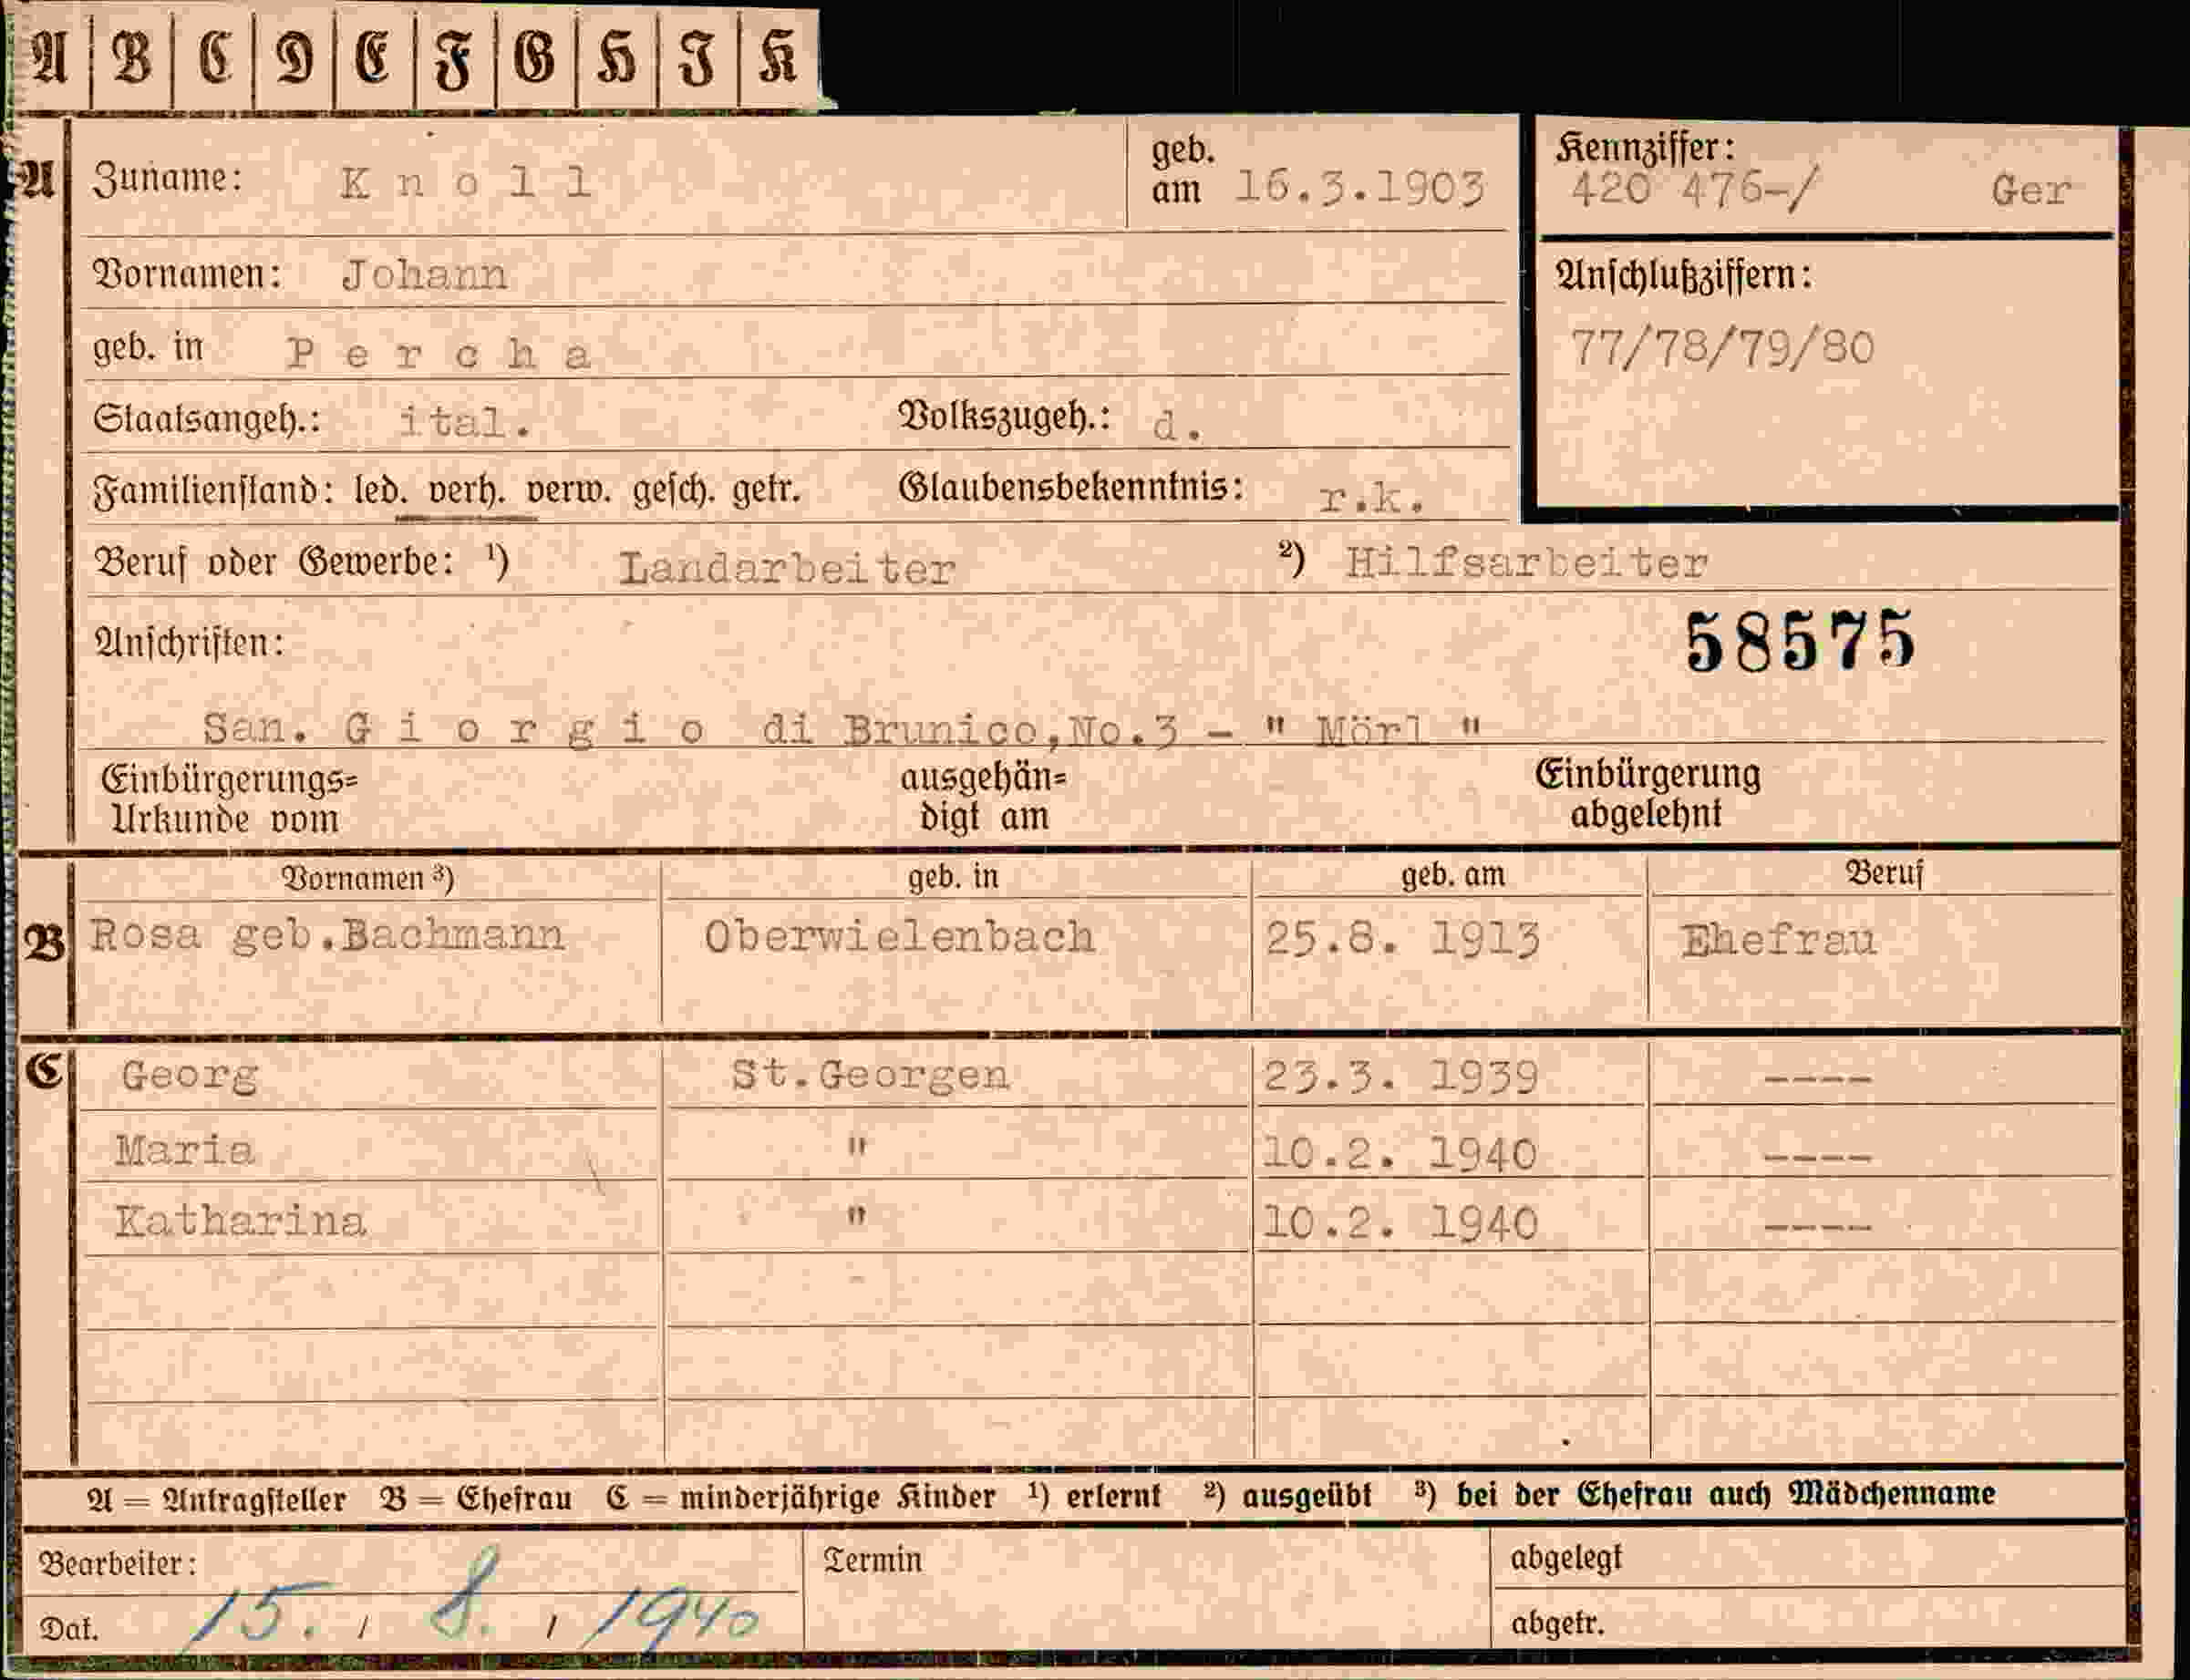 A B C D E F G H I K
A Zuname: K n o l l geb. am 16.3.1903
Kennziffer: 420 476-/ Ger
Vornamen: Johann
Anschlußziffern:
geb. in P e r c h a
77/78/79/80
Staatsangeh.: ital. Volkszugeh.: d.
Familienstand: led. verh. verw. gesch. getr. Glaubensbekenntnis: r.k.
Beruf oder Gewerbe: ¹) Landarbeiter ²) Hilfsarbeiter
Anschriften: 58575
San. G i o r g i o di Brunico,No.3 - " Mörl "
Einbürgerungs= ausgehän= Einbürgerung
Urkunde vom digt am abgelehnt
Vornamen ³) geb. in geb. am Beruf
B Rosa geb.Bachmann Oberwielenbach 25.8. 1913 Ehefrau
C Georg St.Georgen 23.3. 1939 ----
Maria " 10.2. 1940 ----
Katharina " 10.2. 1940 ----
A = Antragsteller B = Ehefrau C = minderjährige Kinder ¹) erlernt ²) ausgeübt ³) bei der Ehefrau auch Mädchenname
Bearbeiter: Termin abgelegt
Dat. 15. / 8. / 1940 abgetr.